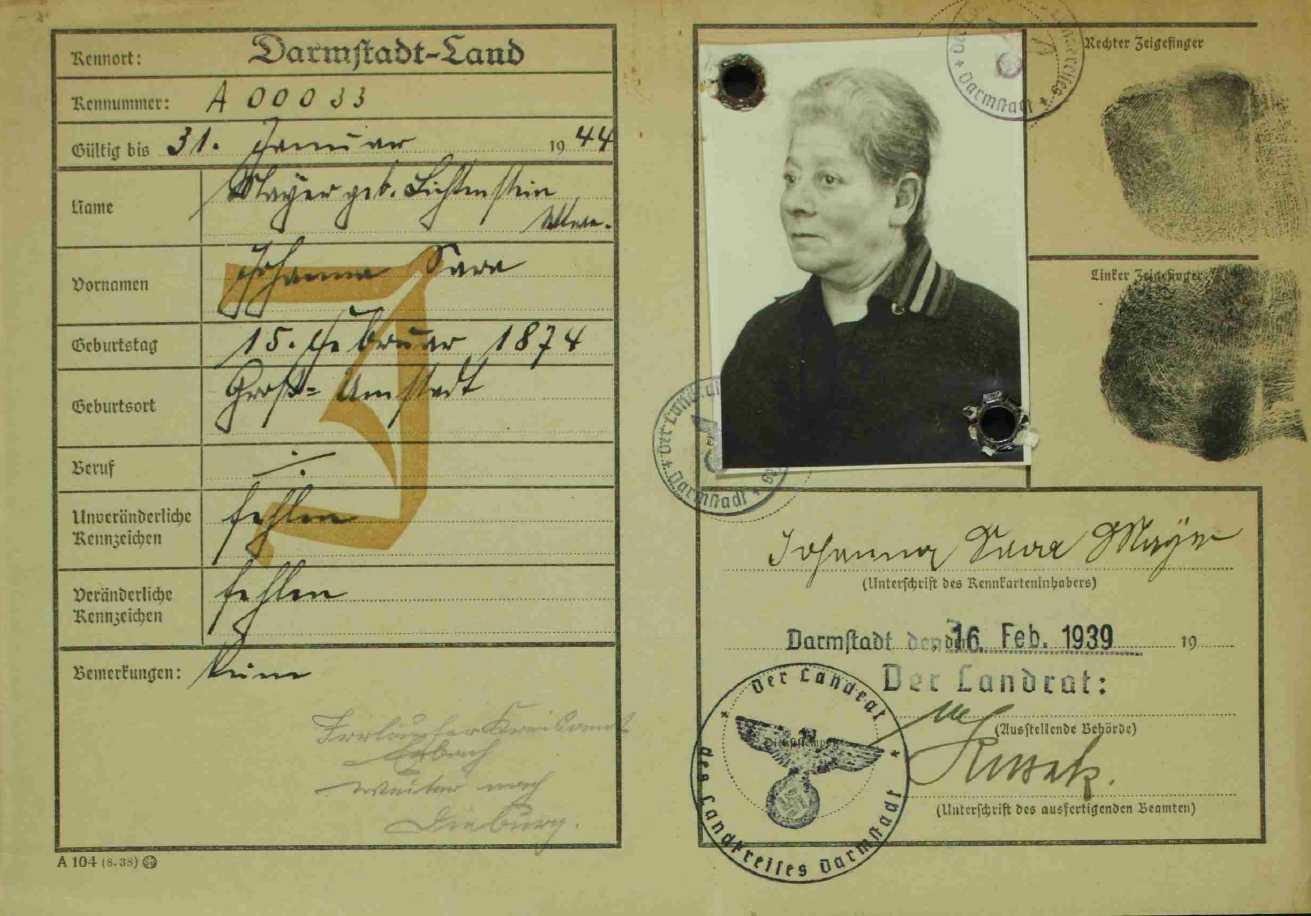 Kennort: Darmstadt-Land
Kennummer: A 00033
Gültig bis 31. Januar 1944
Name Mayer geb. Lichtenstein
Wwe.
Vornamen Johanna Sara
Geburtstag 15. Februar 1874
Geburtsort Groß-Umstadt
Beruf ./.
Unveränderliche fehlen
Kennzeichen
Veränderliche fehlen
Kennzeichen
Bemerkungen: Keine
J
Erbach
weiter nach
Dieburg.
A 104 (8. 38)
Rechter Zeigefinger
Linker Zeigefinger
Darmstadt
Der Landrat
Darmstadt
Johanna Sara Mayer
(Unterschrift des Kennkarteninhabers)
Darmstadt den 16. Feb. 1939 19
Der Landrat:
(Ausstellende Behörde)
(Unterschrift des ausfertigenden Beamten)
Der Landrat des Landkreises Darmstadt
Dienststempel